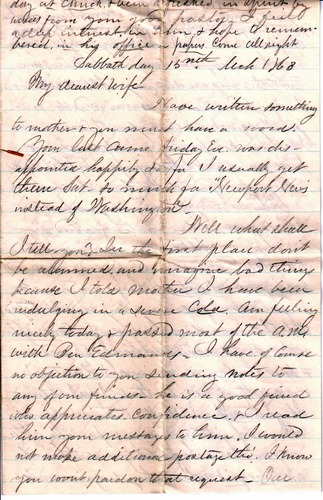 day at church & been refreshed in spirit by
words from your good pastor. I feel
a deep interest in him, & hope to remem-
bered, in his office papers come all right
Sabbath day 15 Mch 1863
My dearest Wife
Have written something
to mother & you must have a word.
Your last came friday eve. was dis-
appointed happily for I usually get
them Sat. So much for Newport News
instead of Washington.
Well, what shall
I tell you? In the first place don't
be alarmed and imagine bad things
because I told mother I have been
indulging in a severe Cold. Am feeling
nicely today & passed most of the A.M.
with Ben Edmands. I have of course
no objection to you sending notes to
any of our friends. he is a good friend
who appreciates confidence. & I read
him your message to him, I would
not make additional postage tho. I know
you wont pardon that request. Our